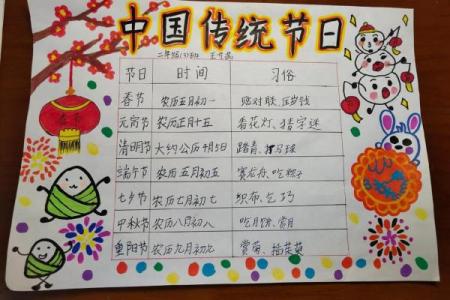 中国传统节日
二年级(3)班
节日 时间 习俗
春节 农历五月初一 贴对联、压岁钱
元宵节 农历正月十五 看花灯、猜字迷
清明节 大约公历4月5日 踏青、
端午节 农历五月初五 赛龙舟、吃粽子
七夕节 农历七月初七 织布、乞巧
中秋节 农历八月八 吃月饼、赏月
重阳节 农历九月初九 赏菊、插茱萸
春节